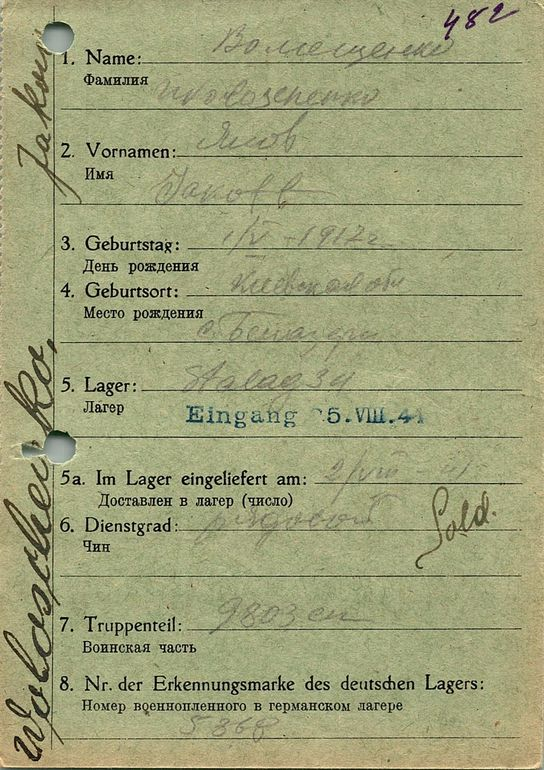 482
1. Name:
Фамилия
2. Vornamen:
Имя
Яков
3. Geburtstag: 1/V - 1917 г
День рождения
4. Geburtsort: Киевская обл
Место рождения
5. Lager: Stalag 34
Лагер
Eingang 25. VIII. 41
5a. Im Lager eingeliefert am: 2/VIII 41
Доставлен в лагер (число)
6. Dienstgrad: рядовой
Чин
Sold.
7. Truppenteil: 9803
Воинская часть
8. Nr. der Erkennungsmarke des deutschen Lagers:
Номер военнопленного в германском лагере
5868
Woloschenko, Jakow